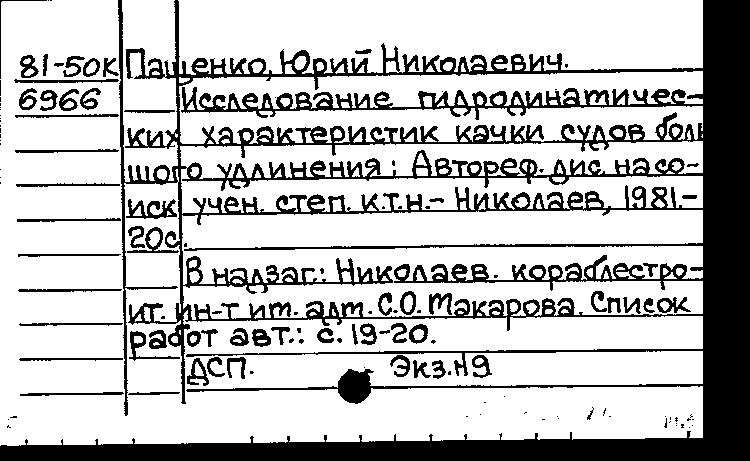 81-50К Пащенко, Юрий Николаевич.
6966 Исследование гидродинамичес-
ких характеристик качки судов боль
шого удлинения: Автореф. дис. на со-
иск учен. степ. к.т.н.- Николаев, 1981.-
20с.
В надзаг.: Николаев. кораблестро-
ит. ин-т им. адм. С.О. Макарова. Список
работ авт.: с. 19-20.
ДСП. Экз.№9